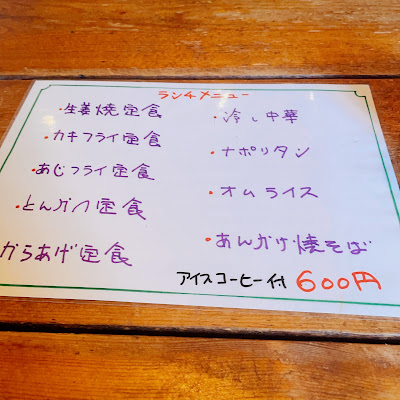 ランチメニュー
・生姜焼定食
・カキフライ定食
・あじフライ定食
・とんかつ定食
からあげ定食
・冷し中華
・ナポリタン
・オムライス
・あんかけ焼そば
アイスコーヒー付 600円